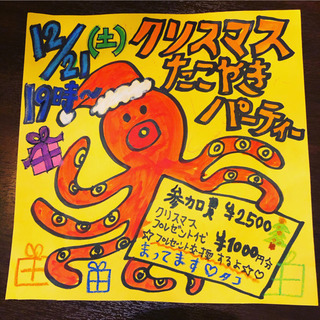 12/21(土)
19時〜
クリスマス
たこやき
パーティー
参加費 ¥2500
クリスマス
プレゼント代 ¥1000円分
☆プレゼント交換するよ☆♡
まってます♡タコ